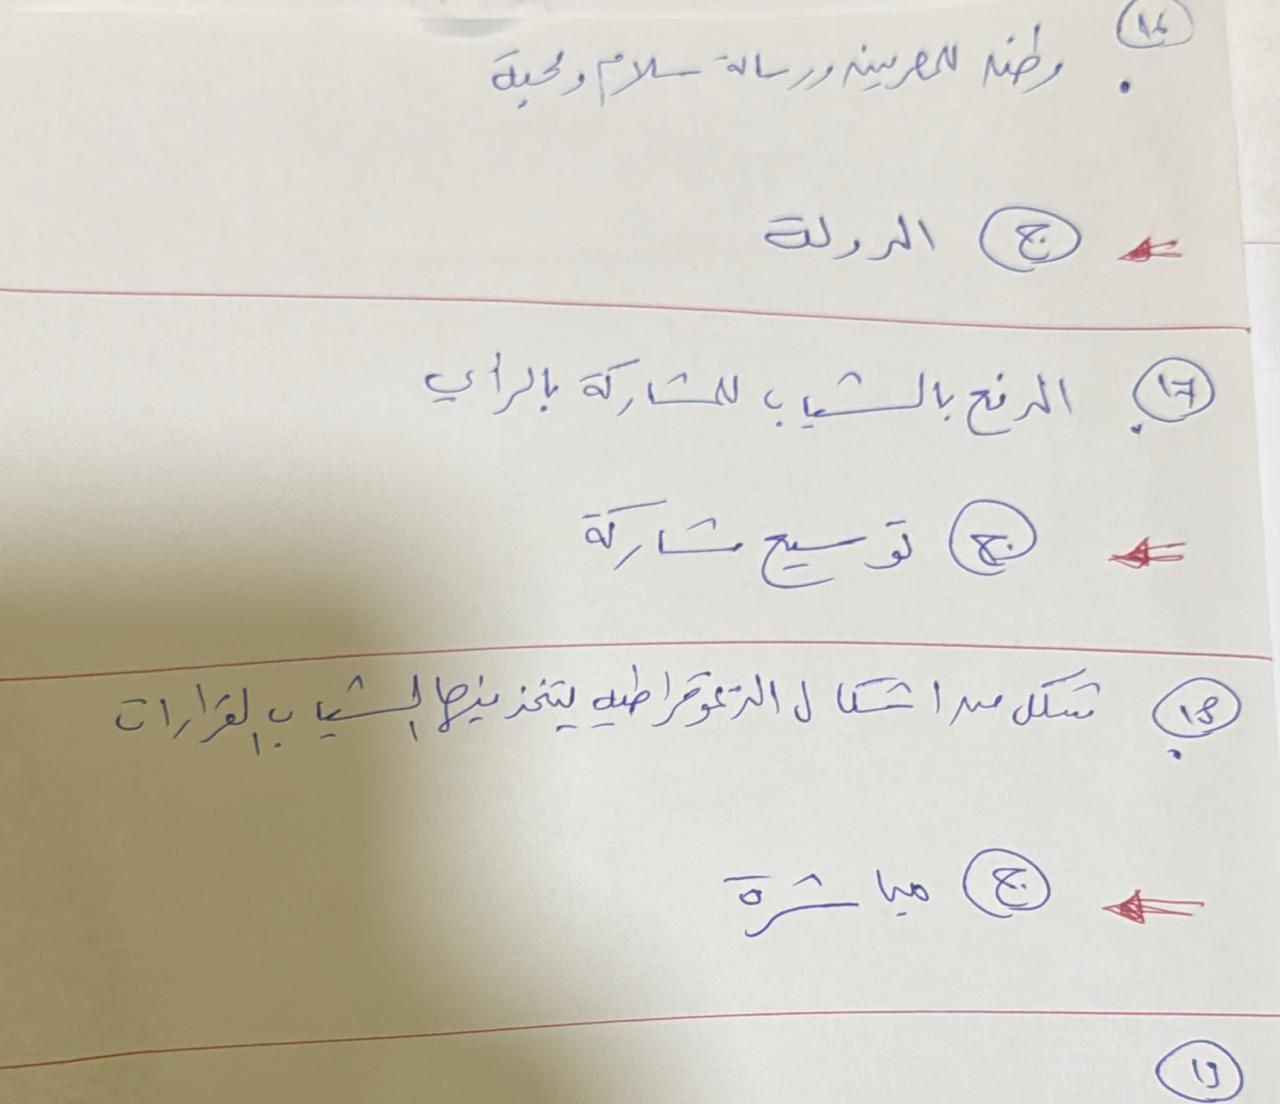 ١٦
وطنه للمصريين ورسالة سلام ومحبة
ج الدولة
١٧ الدفع بالشباب للمشاركة بالرأي
ج توسيع مشاركة
١٨ شكل من اشكال الديموقراطيه يتخذ فيها الشباب القرارات
ج مباشرة
١٩